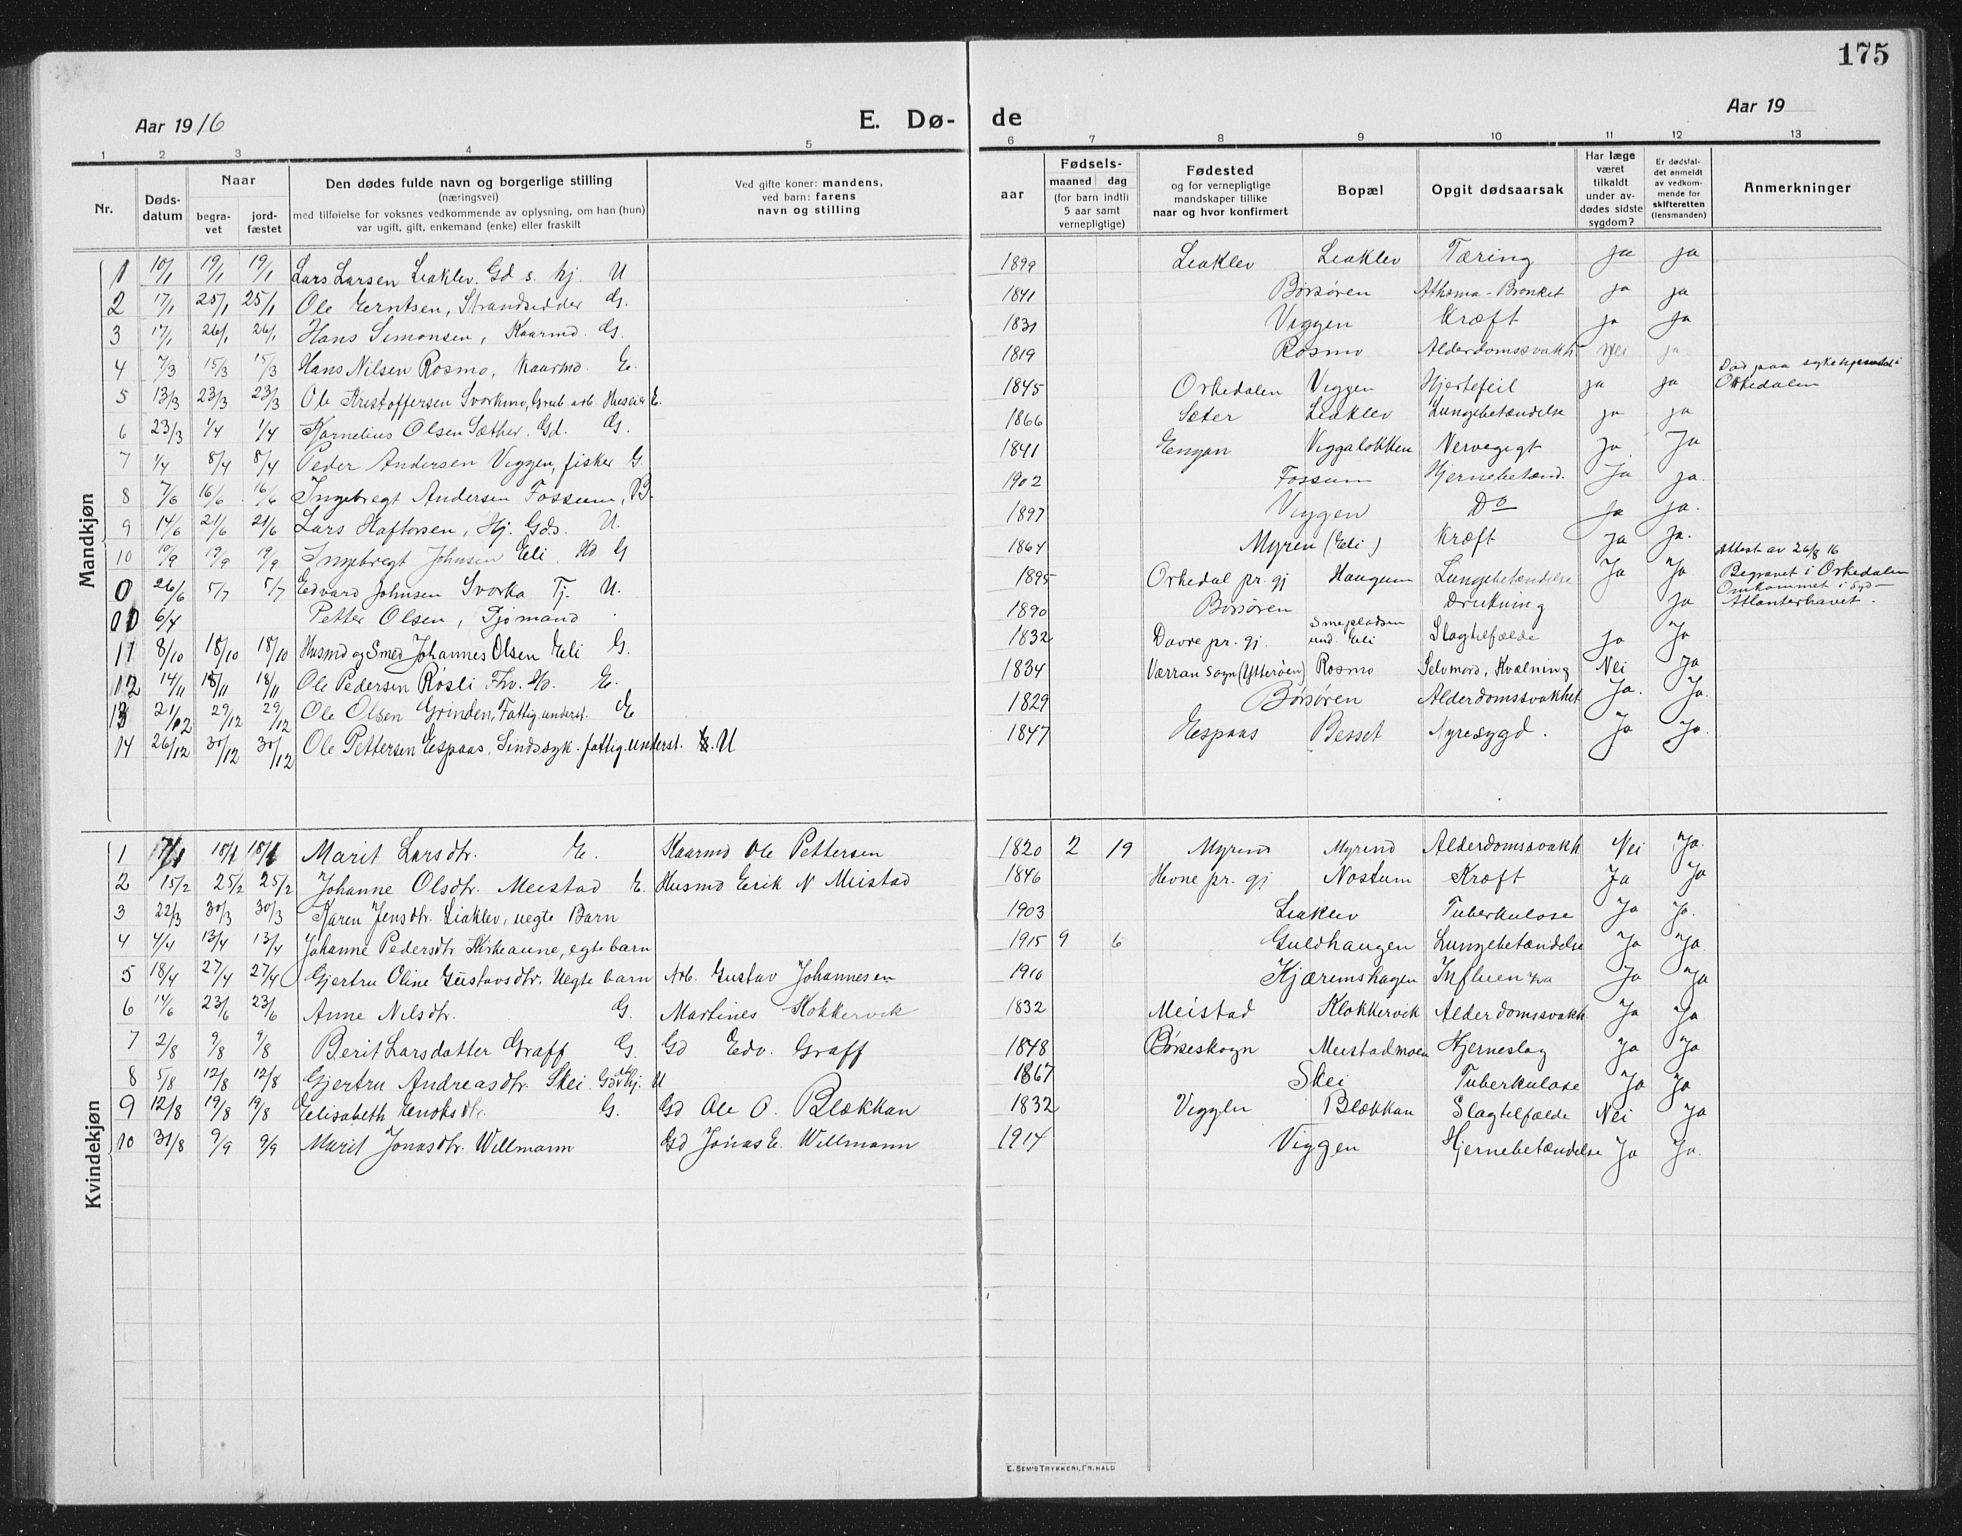 175
Aar 1916
E. Dø-
de
Aar 19
1 2 3 4 5 6 7 8 9 10 11 12 13
Nr.
Døds-
datum
Naar
begra-
vet
jord-
fæstet
Den dødes fulde navn og borgerlige stilling
(næringsvei)
med tilføielse for voksnes vedkommende av oplysning, om han (hun)
var ugift, gift, enkemand (enke) eller fraskilt
Ved gifte koner: mandens,
ved barn: farens
navn og stilling
aar
Fødsels-
maaned dag
(for barn indtil
5 aar samt
vernepligtige)
Fødested
og for vernepligtige
mandskaper tillike
naar og hvor konfirmert
Bopæl
Opgit dødsaarsak
Har læge
været
tilkaldt
under av-
dødes sidste
sygdom?
Er dødsfal-
det anmeldt
av vedkom-
mende for
skifteretten
(lensmanden)
Anmerkninger
Mandkjøn
1 10/1 19/1 19/1 Lars Larsen Leaklev. Gd s. hj. U 1899 Leaklev Leaklev Tæring ja ja
2 17/1 25/1 25/1 Ole Erntsen, Strandsidder G. 1841 Børsøren Asthma-Bronket ja ja
3 17/1 26/1 26/1 Hans Simonsen, Kaarmd. G. 1831 Viggen Kræft ja ja
4 7/3 15/3 15/3 Hans Nilsen Rosmo, Kaarmd. E. 1819 Rosmo Alderdomssvakh Nei ja
5 13/3 23/3 23/3 Ole Kristoffersen Svorkmo, Grub. arb. Huseier E. 1845 Orkedalen Viggen Hjertefeil ja ja Død paa sykehjemmet i Orkedalen
6 23/3 1/4 1/4 Kornelius Olsen Sæther. Gd. G. 1866 Sæter Leaklev Lungebetændelse ja ja
7 1/4 8/4 8/4 Peder Andersen Viggen, fisker G. 1841 Engan Viggaløkken Nervegigt Ja Ja
8 7/6 16/6 16/6 Ingebregt Andersen Fossum, B. 1902 Fossum Hjernebetænd. Ja ja.
9 14/6 21/6 21/6 Lars Haftorsen, Hj. Gds. U. 1897 Viggen Do Ja ja.
10 10/9 19/9 19/9 Ingebregt Johnsen Eli. Hd G 1864 Myren (Eli) Kræft ja Ja.
0 26/6 5/7 5/7 Edvard Johnsen Svorka Tj. U. 1895 Orkedal pr. gj Haugum Lungebetændelse Ja Ja Attest av 26/8 16 Begravet i Orkedalen
00 6/4 Petter Olsen, Sjømand. 1890 Børsøren Drukning Ja Omkommet i Syd-Atlanterhavet.
11 8/10 18/10 18/10 Husmd og Smed Johannes Olsen Eli G. 1832 Dovre pr. gj. Smepladsen und. Eli Slagtilfælde ja Ja
12 14/11 18/11 18/11 Ole Pedersen Røsli Fhv. Hd. E. 1834 Værran Sogn (Ytterøen) Rosmo Selvmord, Kvælning Nei Ja
13 21/12 29/12 29/12 Ole Olsen Grinden, Fattig.underst. E 1829 Børsøren Alderdomssvakhet Ja. Ja.
14 26/12 30/12 30/12 Ole Pettersen Espaas. Sindssyk. fattig.underst. U 1847 Espaas Besset Nyresygd. Ja Ja.
Kvindekjøn
1 17/1 18/1 18/1 Marit Larsdtr. E. Kaarmd Ole Pettersen 1820 2 19 Myrend Myrend Alderdomssvakh Nei Ja.
2 15/2 25/2 25/2 Johanne Olsdtr. Meistad E. Husmd Erik N Meistad 1846 Hevne pr. gj Nostum Kræft Ja Ja
3 22/3 30/3 30/3 Karen Jensdtr. Liaklev, uegte Barn 1903 Leaklev Tuberkulose Ja Ja.
4 4/4 13/4 13/4 Johanne Pedersdtr Kirkeaune, egte barn 1915 9 6 Guldhaugen Lungebetændelse Ja Ja.
5 18/4 27/4 27/4 Gjertru Oline Gustavsdtr. Uegte barn Arb. Gustav Johannesen 1910 Kjæremshagen Influenza Ja Ja
6 14/6 23/6 23/6 Anne Nilsdtr. G. Martines Klokkervik 1832 Meistad Klokkervik Alderdomssvakh Ja Ja.
7 2/8 9/8 9/8 Berit Larsdatter Graff G. Gd Edv. Graff 1848 Børseskogn Meistadmoen Hjerneslag Ja Ja
8 5/8 12/8 12/8 Gjertru Andreasdtr. Skei Gdr hj. U 1867 Skei Tuberkulose Ja Ja
9 12/8 19/8 19/8 Elisabeth Enoksdtr. G. Gd Ole O. Blækkan 1832 Viggen Blækkan Slagtilfælde Nei Ja
10 31/8 9/9 9/9 Marit Jonasdtr. Willmann Gd Jonas E. Willmann 1914 Viggen Hjernebetændelse Ja Ja.
E. SEM'S TRYKKERI, FR. HALD